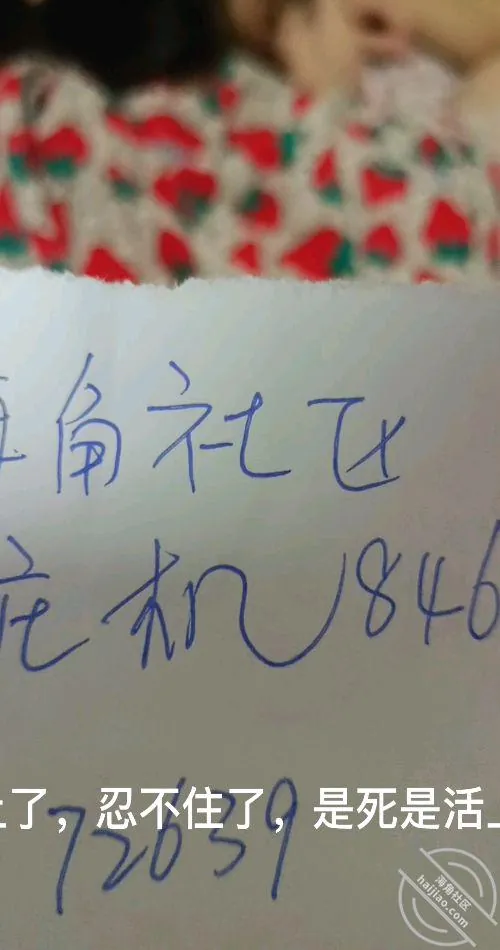 角社区
庄机846
了，忍不住了，是死是活
72639
海角社区
haijiao.com